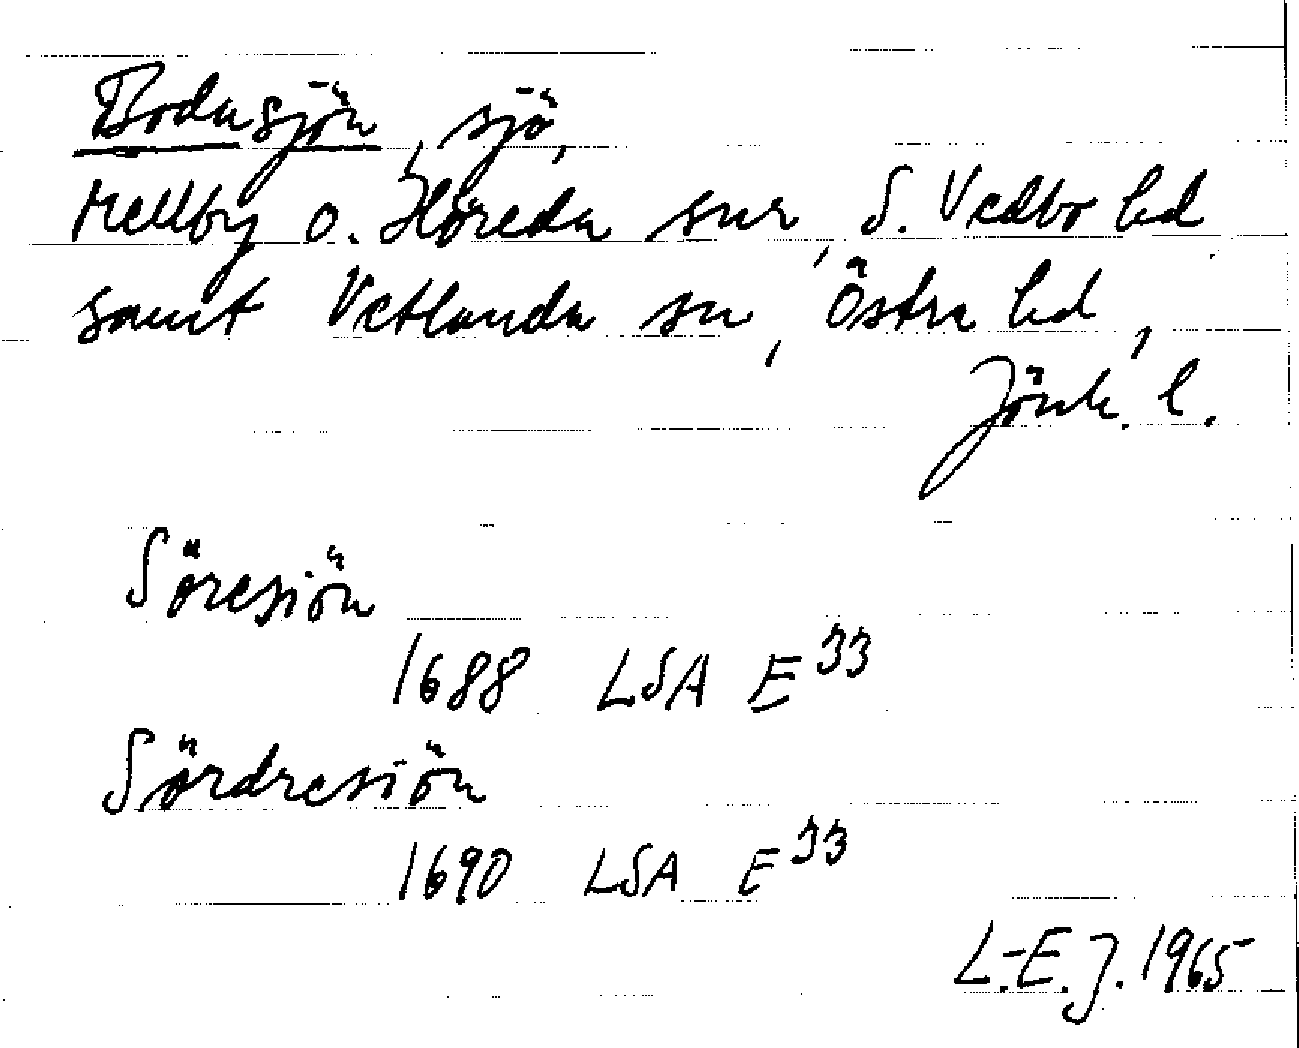 Bodasjön, sjö,
Mellby o. Höreda snr, S. Vedbo hd
samt Vetlanda sn, Östra hd,
Jönk. l.
Söresiön
1688 LSA E 33
Sördresiön
1690 LSA E 33
L.-E. J. 1965